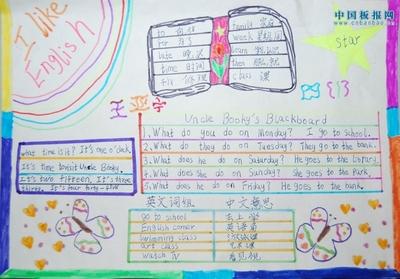 中国板报网
www.cnbanbao.cn
I like
English
star
to 向,朝
for 为了
late 晚,迟
time 时间
fix 修理
family 家庭
week
learn
then
class 课
Uncle Booky's Blackboard
1. What do you do on Monday? I go to school.
2. What do they do on Tuesday? They go to the bank.
3. What does he do on Saturday? He goes to the library.
4. What does she do on Sunday? She goes to the park.
5. What does he do on Friday? He goes to the bank.
What time is it? It's one o'clock.
It's time to visit Uncle Booky.
It's two fifteen. It's three
thirty. It's four forty-five
英文词组 中文意思
go to school 去上学
English corner 英语角
swimming class 游泳课
art class 艺术课
watch TV 看电视